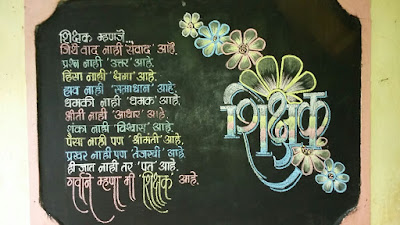 शिक्षक म्हणजे...
जिथे वाद नाही 'संवाद' आहे.
प्रश्न नाही 'उत्तर' आहे.
हिंसा नाही 'क्षमा' आहे.
हाव नाही 'समाधान' आहे.
धमकी नाही 'धमक' आहे.
भीती नाही 'आधार' आहे.
शंका नाही 'विश्वास' आहे.
पैसा नाही पण 'श्रीमंती' आहे.
प्रखर नाही पण 'तेजस्वी' आहे.
ही जात नाही तर 'पत' आहे.
गर्वाने म्हणा मी 'शिक्षक' आहे.
शिक्षक